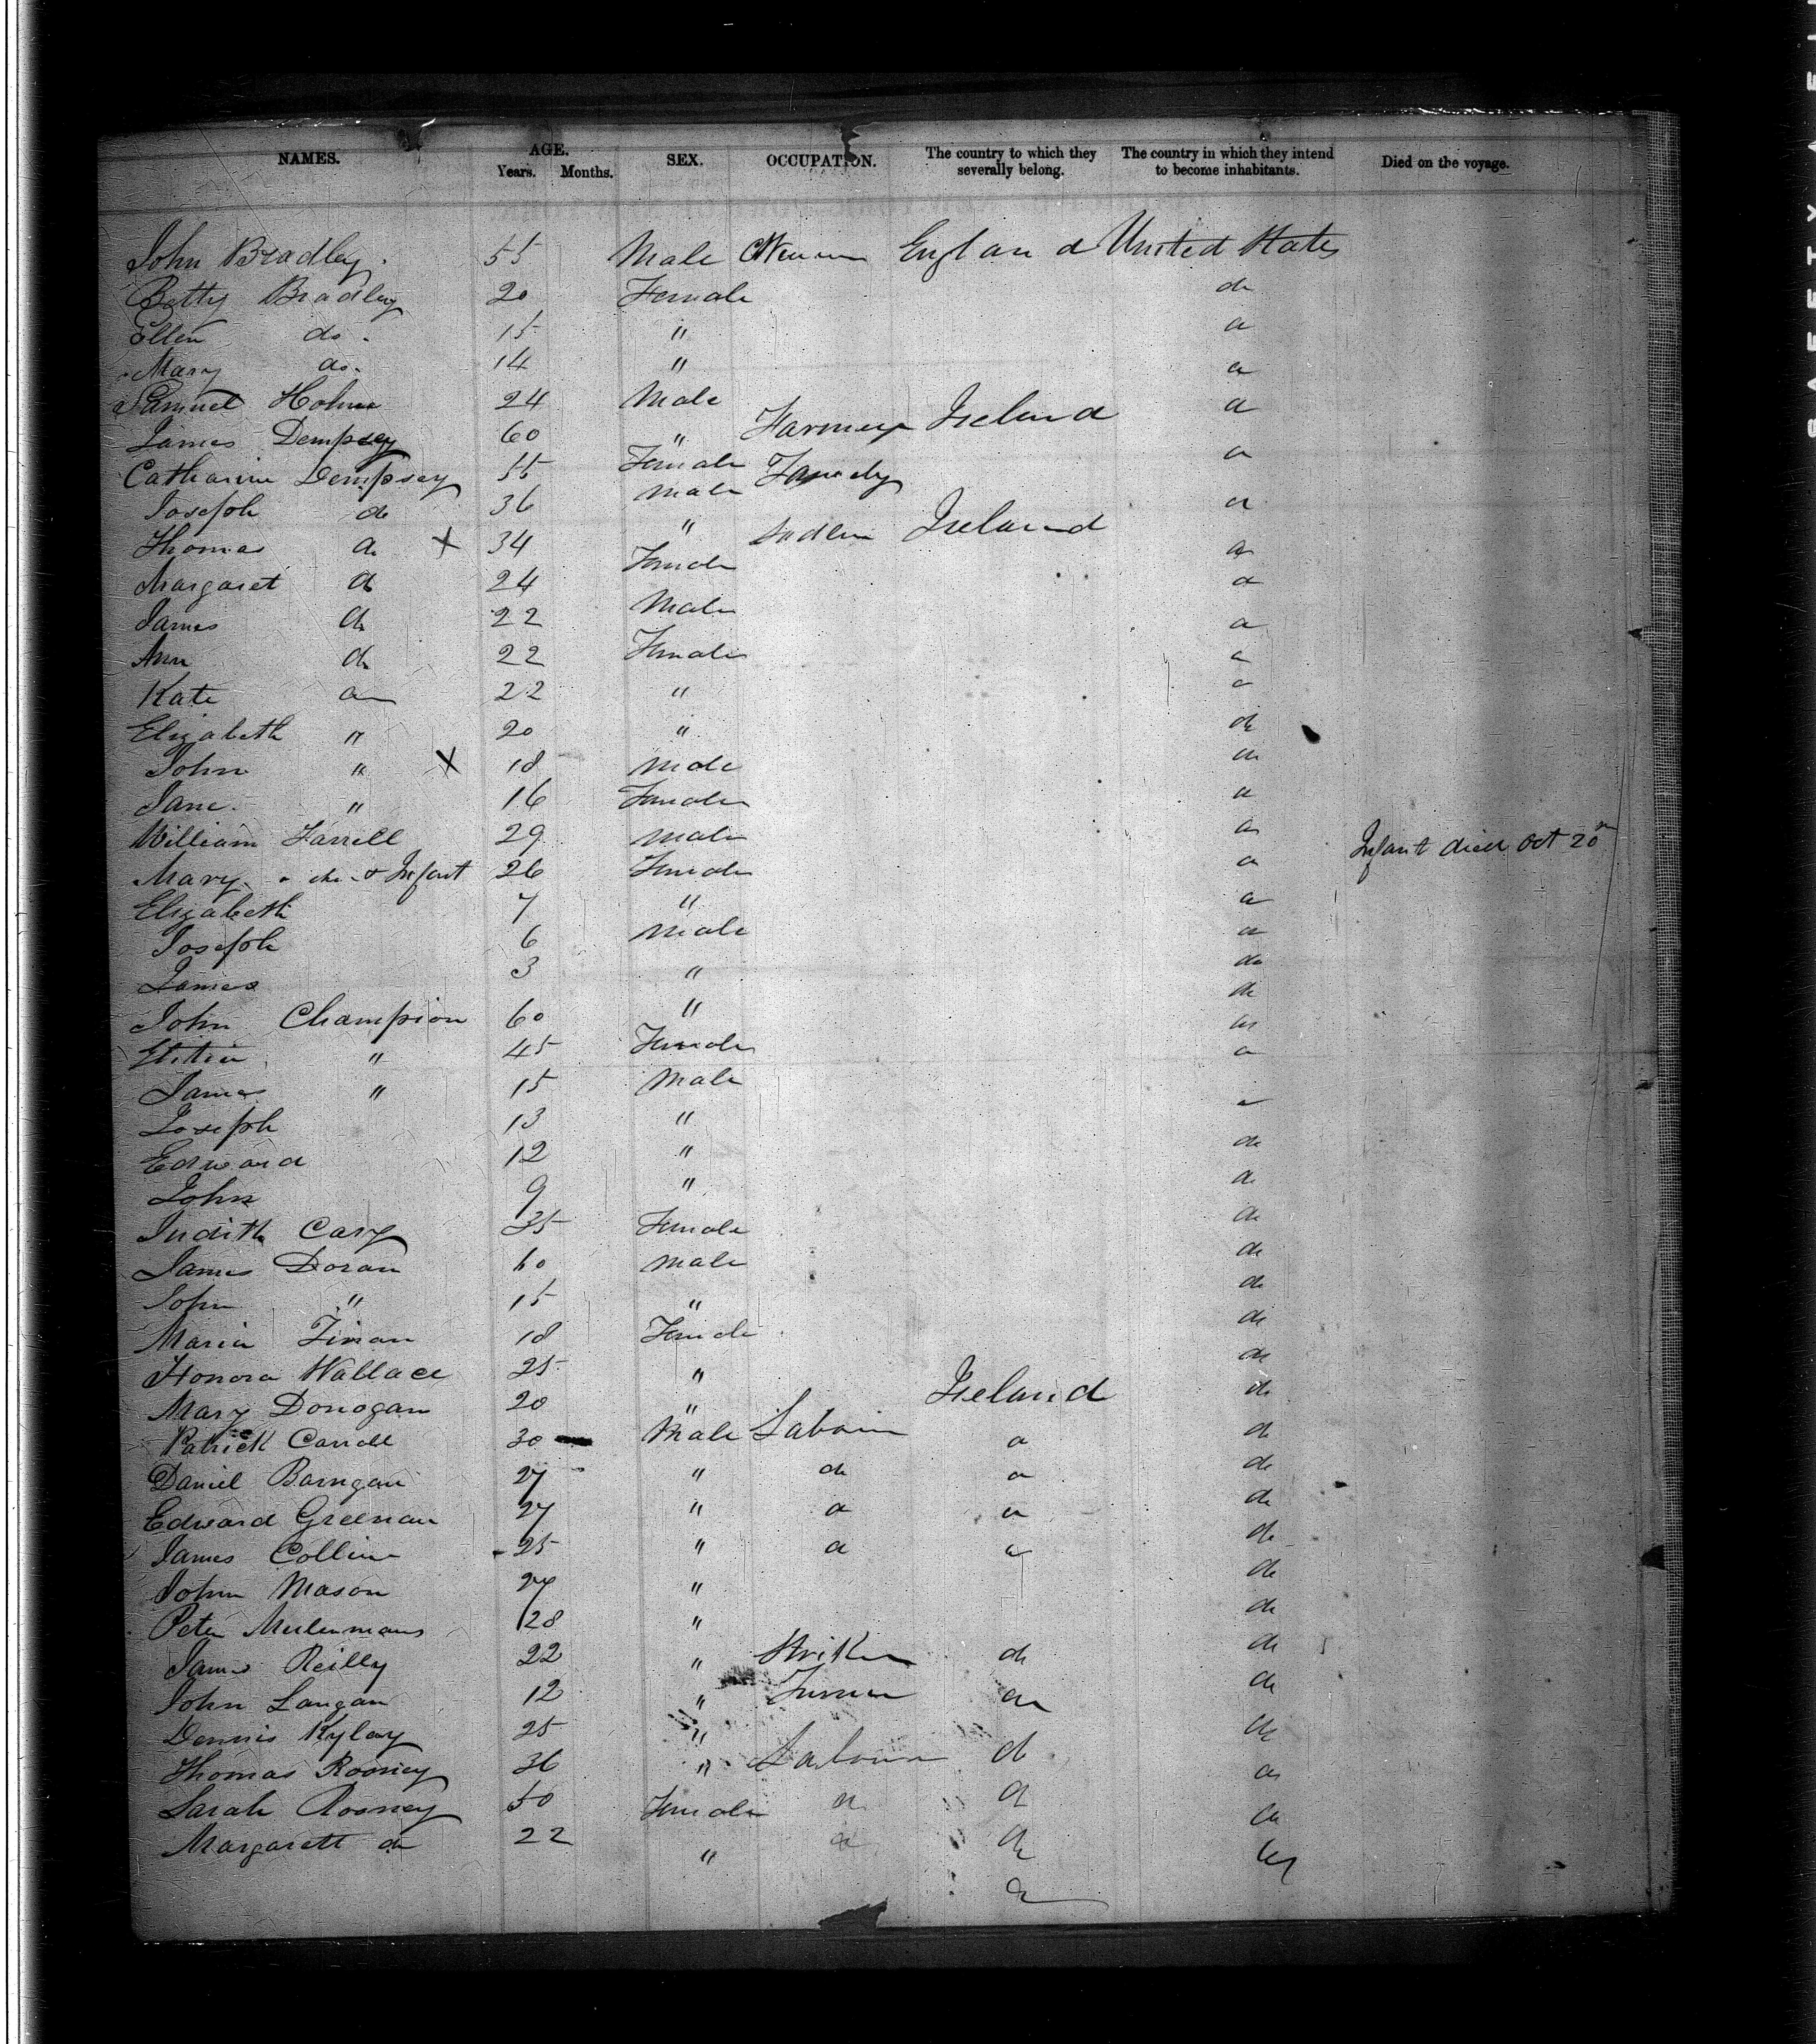 NAMES. AGE. Years. Months. SEX. OCCUPATION. The country to which they severally belong. The country in which they intend to become inhabitants. Died on the voyage.
John Bradley. 55 Male England United States
Betty Bradley 20 Female do
Ellen do. 15 " do
Mary do. 14 " do
Samuel Holme 24 Male do
James Dempsey 60 " Farmer Ireland do
Catharine Dempsey 55 Female Family
Joseph do 36 Male do
Thomas do X 34 " Ireland do
Margaret do 24 Female do
James do 22 Male do
Ann do 22 Female do
Kate do 22 " do
Elizabeth " 20 " do
John " X 18 Male do
Jane. " 16 Female do
William Farrell 29 Male do
Mary " do & Infant 26 Female do Infant died Oct 20
Elizabeth 7 " do
Joseph 6 Male do
James 3 " do
John Champion 60 " do
" 45 Female do
James " 15 Male do
Joseph 13 " do
Edward 12 " do
John 9 " do
Judith Cary 35 Female do
James Doran 60 Male do
John " 15 " do
Maria Finan 18 Female do
Honora Wallace 25 " do
Mary Donogan 20 " Ireland do
Patrick Carroll 30 Male Labour do do
Daniel 27 " do do do
Edward Greenan 27 " do do do
James Collins 25 " do do do
John Mason 27 " do
Peter 28 " do
James Reilly 22 " Striker do do
John Langan 12 " do do
Dennis Kylay 25 " Labour do do
Thomas Rooney 36 " do do do
Sarah Rooney 50 Female do do do
Margarett do 22 " do do